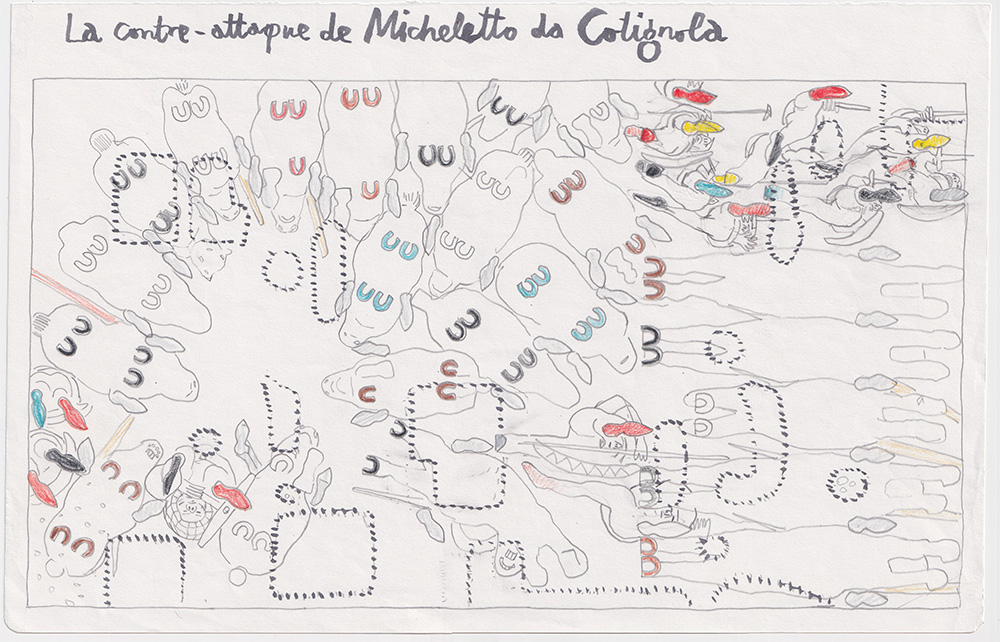 La contre-attaque de Micheletto da Cotignola